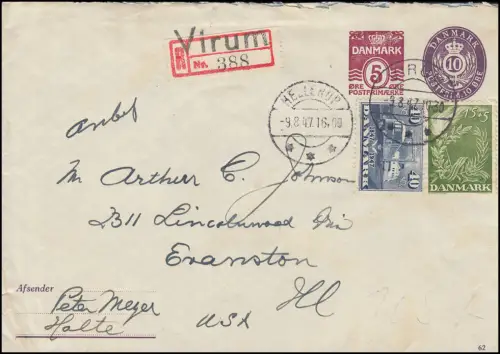 Virum
R No. 388
DANMARK
5
ØRE ØRE
POSTFRIMÆRKE
DANMARK
10
HELLERUP
-9.8.47.16.00
40
DANMARK
40
15+5
DANMARK
anbef
Mr Arthur C. Johnson
2311 Lincolnwood Drive
Evanston
Ill
USA
Afsender
Peter Meyer
Holte
62